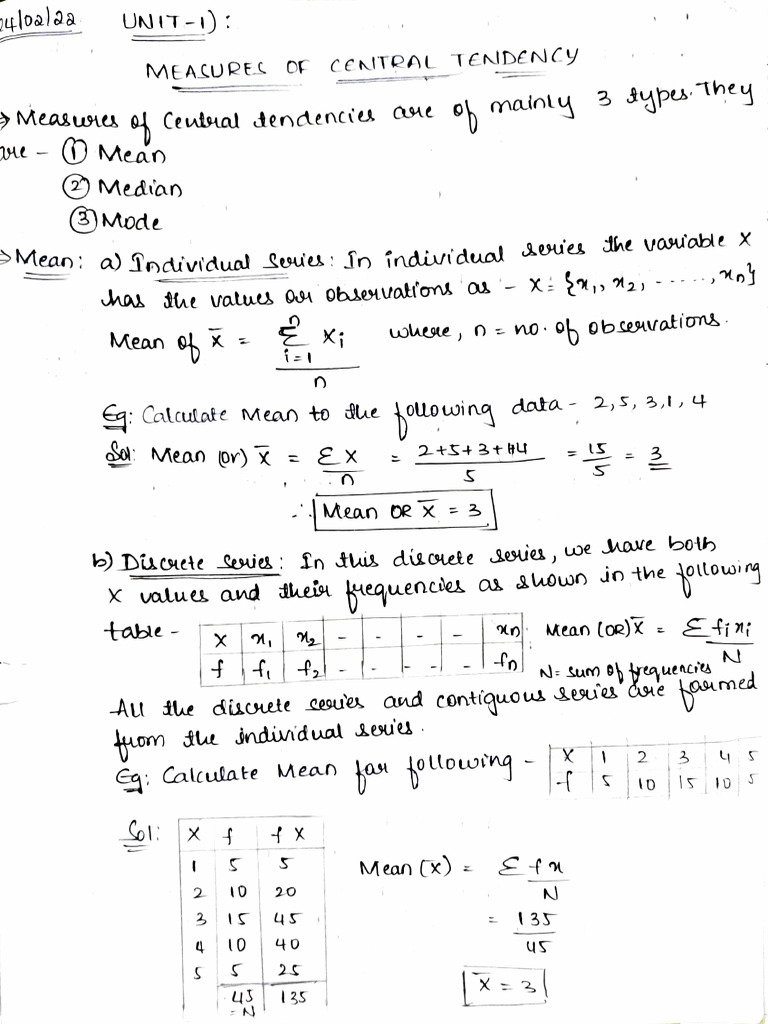 24/02/22 UNIT-1):
MEASURES OF CENTRAL TENDENCY
→ Measures of Central tendencies are of mainly 3 types. They
are - ① Mean
② Median
③ Mode
→ Mean: a) Individual Series: In individual series the variable X
has the values or observations as - X = {x₁, x₂, ......, xn}
Mean of x̄ = Σ(i=1 to n) xi / n where, n = no. of observations.
Eg: Calculate Mean to the following data - 2, 5, 3, 1, 4
Sol: Mean (or) x̄ = ΣX/n = 2+5+3+1+4/5 = 15/5 = 3
∴ Mean OR x̄ = 3
b) Discrete series: In this discrete series, we have both
X values and their frequencies as shown in the following
table - X x₁ x₂ - - - - xn Mean (OR) x̄ = Σfixi/N
f f₁ f₂ - - - - fn N = sum of frequencies
All the discrete series and contiguous series are formed
from the individual series.
Eg: Calculate Mean for following - X 1 2 3 4 5
f 5 10 15 10 5
Sol: X f fX
1 5 5
2 10 20
3 15 45
4 10 40
5 5 25
45 = N 135
Mean (x̄) = Σfx/N
= 135/45
x̄ = 3